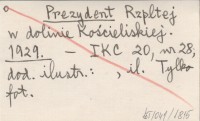 Prezydent Rzpltej
w dolinie Kościeliskiej.
1929. — IKC 20, nr 28,
dod. ilustr.: , il. Tylko
fot.